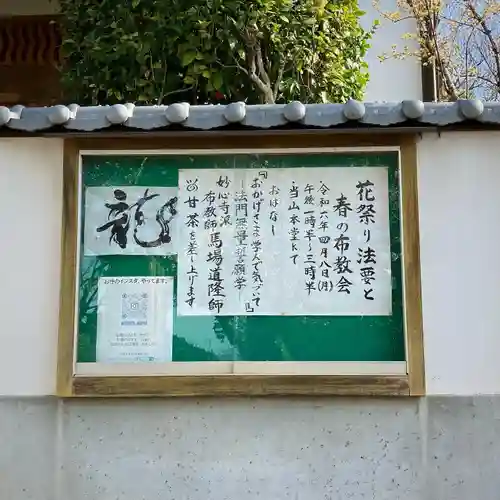 花祭り法要と
春の布教会
・令和六年四月八日(月)
午後一時半～三時半
・当山本堂にて
おはなし
『おかげさま学んで気づいて
―法門無量誓願学』
妙心寺派
布教師 馬場道隆師
甘茶を差し上げます
龍
お寺のインスタ、やってます